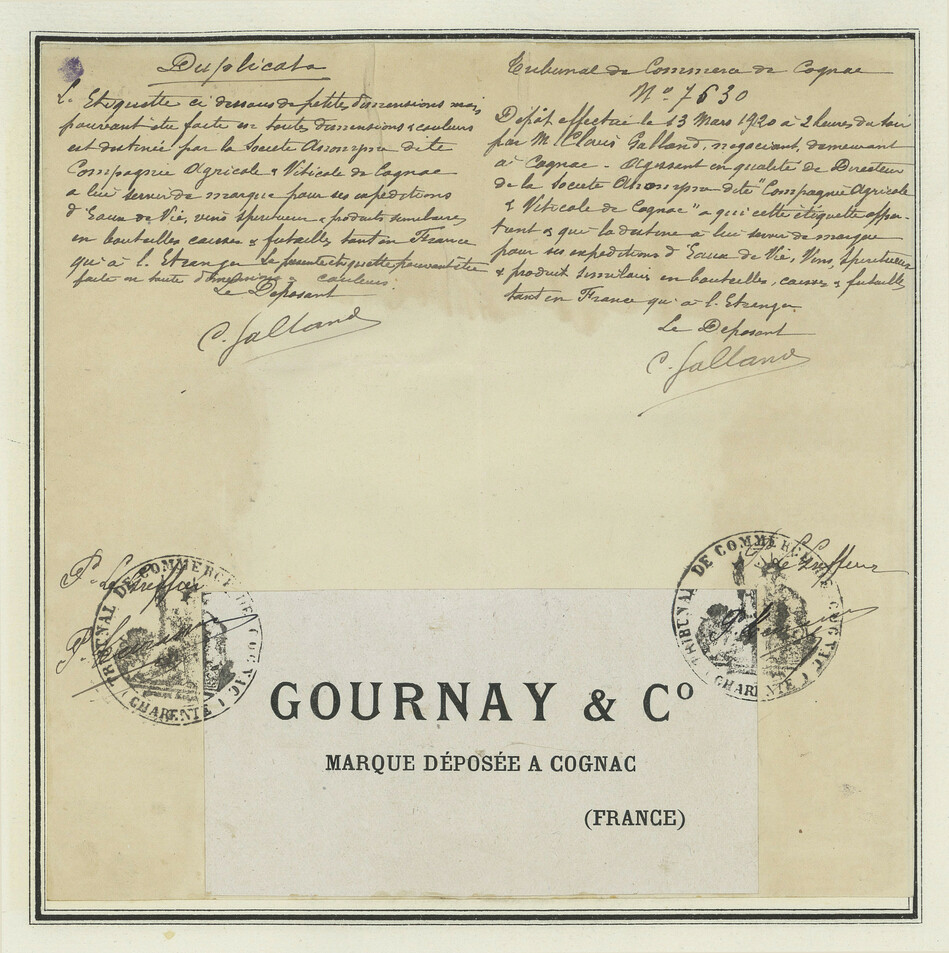 Duplicata
L'Etiquette ci dessous de petites dimensions mais
pouvant être faite en toutes dimensions & couleurs
est destinée par la Societe Anonyme dite
Compagnie Agricole & Viticole de Cognac
a lui servir de marque pour ses expeditions
d'Eaux de Vie, vins spiritueux & produits similaires,
en bouteilles caisses & futailles tant en France
qu'à l'Etranger La presente etiquette pouvant être
faite en toute dimensions & couleurs.
Le Deposant
C. Galland
Tribunal de Commerce de Cognac
No. 7630
Dépôt effectué le 13 Mars 1920 à 2 heures du soir
par M. Clovis Galland, negociant, demeurant
à Cognac - Agissant en qualité de Directeur
de la Societe Anonyme dite "Compagnie Agricole
& Viticole de Cognac" a qui cette étiquette appar-
tient & qui la destine a lui servir de marque
pour ses expeditions d'Eaux de Vie, Vins, Spiritueux
& produit similaire en bouteilles, caisses & futailles
tant en France qu'à l'Etranger
Le Deposant
C. Galland
Pr. Le Greffier
TRIBUNAL DE COMMERCE DE COGNAC
(CHARENTE)
Le Greffier
TRIBUNAL DE COMMERCE DE COGNAC
(CHARENTE)
GOURNAY & Co
MARQUE DÉPOSÉE A COGNAC
(FRANCE)